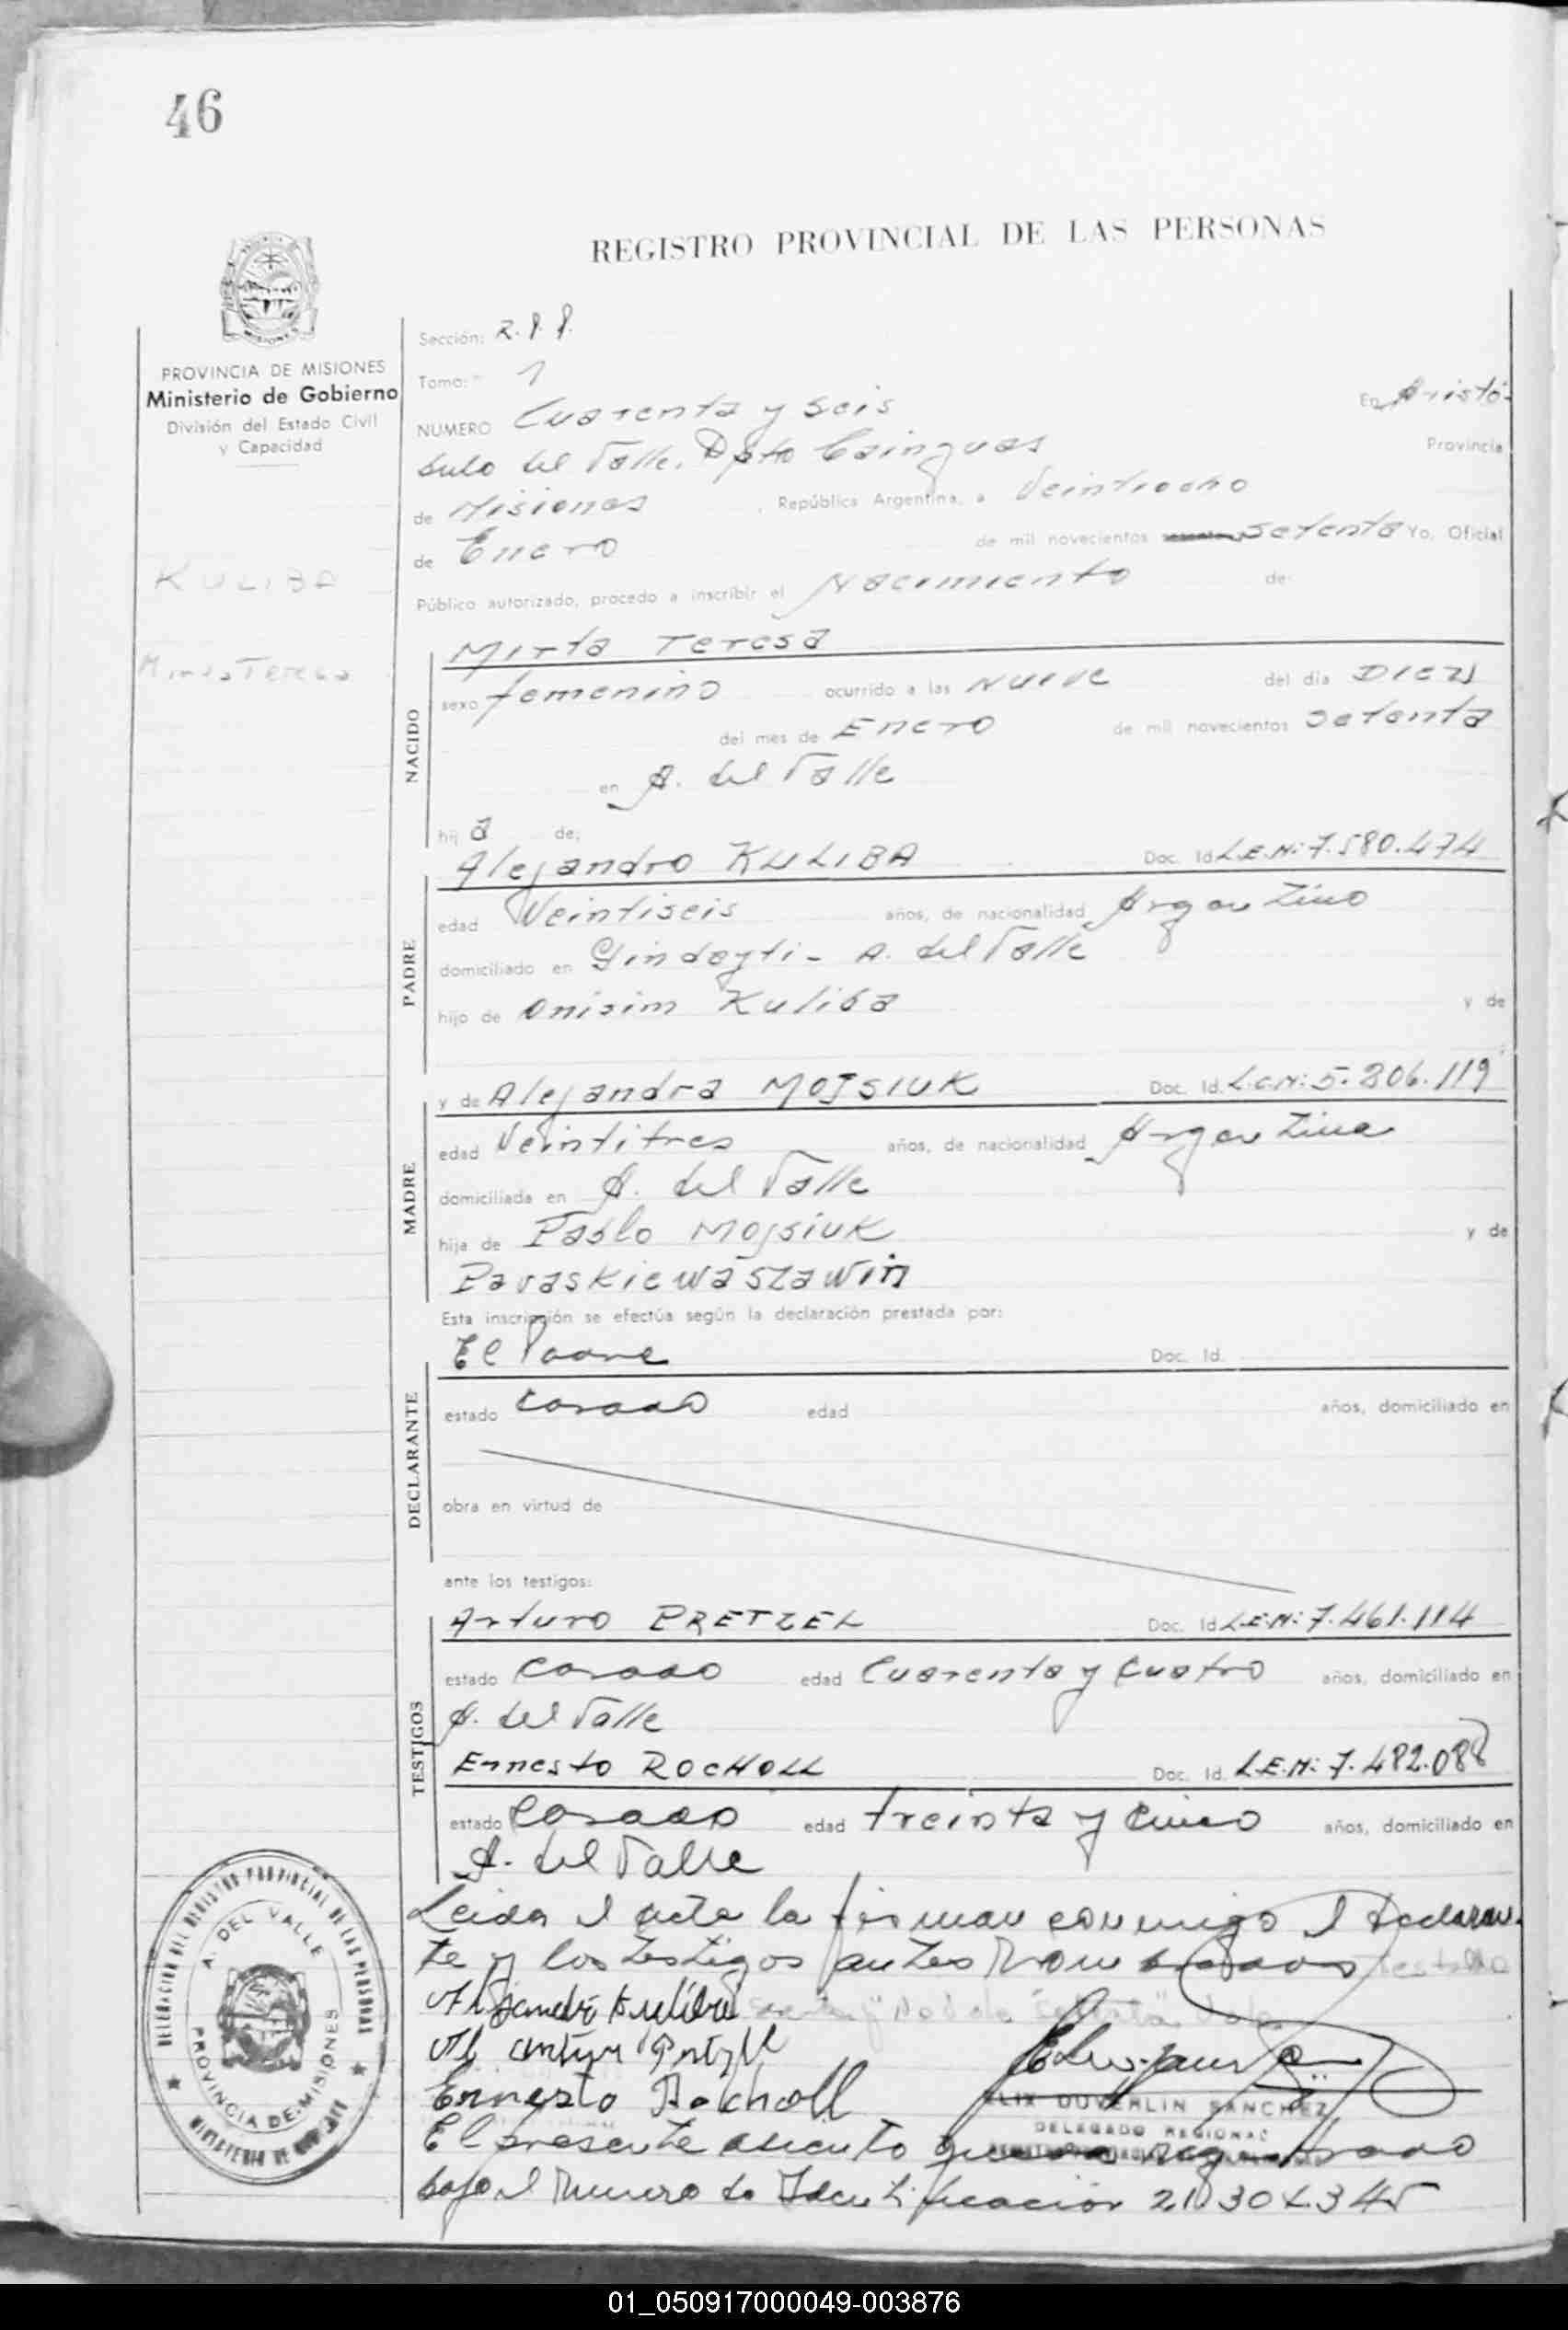 46
REGISTRO PROVINCIAL DE LAS PERSONAS
PROVINCIA DE MISIONES
Ministerio de Gobierno
División del Estado Civil
y Capacidad
KULIBA
Mirta Teresa
Sección: R.P.P.
Tomo: 1
NUMERO Cuarenta y seis En Aristó-
bulo del Valle, Dpto Cainguas Provincia
de Misiones, República Argentina, a Veintiocho
de Enero de mil novecientos setenta Yo, Oficial
Público autorizado, procedo a inscribir el Nacimiento de:
NACIDO
Mirta Teresa
sexo femenino ocurrido a las Nueve del día Diez
del mes de Enero de mil novecientos setenta
en A. del Valle
hija de:
PADRE
Alejandro KULIBA Doc. Id. L.E.N: 7.580.474
edad Veintiseis años, de nacionalidad Argentino
domiciliado en A. del Valle
hijo de Onisim Kuliba y de
MADRE
y de Alejandra MOJSIUK Doc. Id. L.C.N: 5.806.119
edad Veintitres años, de nacionalidad Argentina
domiciliada en A. del Valle
hija de Pablo Mojsiuk y de
Paraskiewa Szawin
Esta inscripción se efectúa según la declaración prestada por:
DECLARANTE
El Padre Doc. Id.
estado Casado edad años, domiciliado en
obra en virtud de
ante los testigos:
TESTIGOS
Arturo PRETZEL Doc. Id. L.E.N: 7.461.114
estado Casado edad Cuarenta y Cuatro años, domiciliado en
A. del Valle
Ernesto ROCHOLL Doc. Id. L.E.N: 7.482.088
estado Casado edad treinta y cinco años, domiciliado en
A. del Valle
Leida el acta la firman conmigo el declaran-
te y los testigos antes Nombrados
Alejandro Kuliba
Ernesto Rocholl
DUVERLIN SANCHEZ
DELEGADO REGIONAL
El presente asiento queda registrado
bajo el Numero de Identificación
DELEGACION DEL REGISTRO PROVINCIAL DE LAS PERSONAS
A. DEL VALLE
PROVINCIA DE MISIONES
01_050917000049-003876